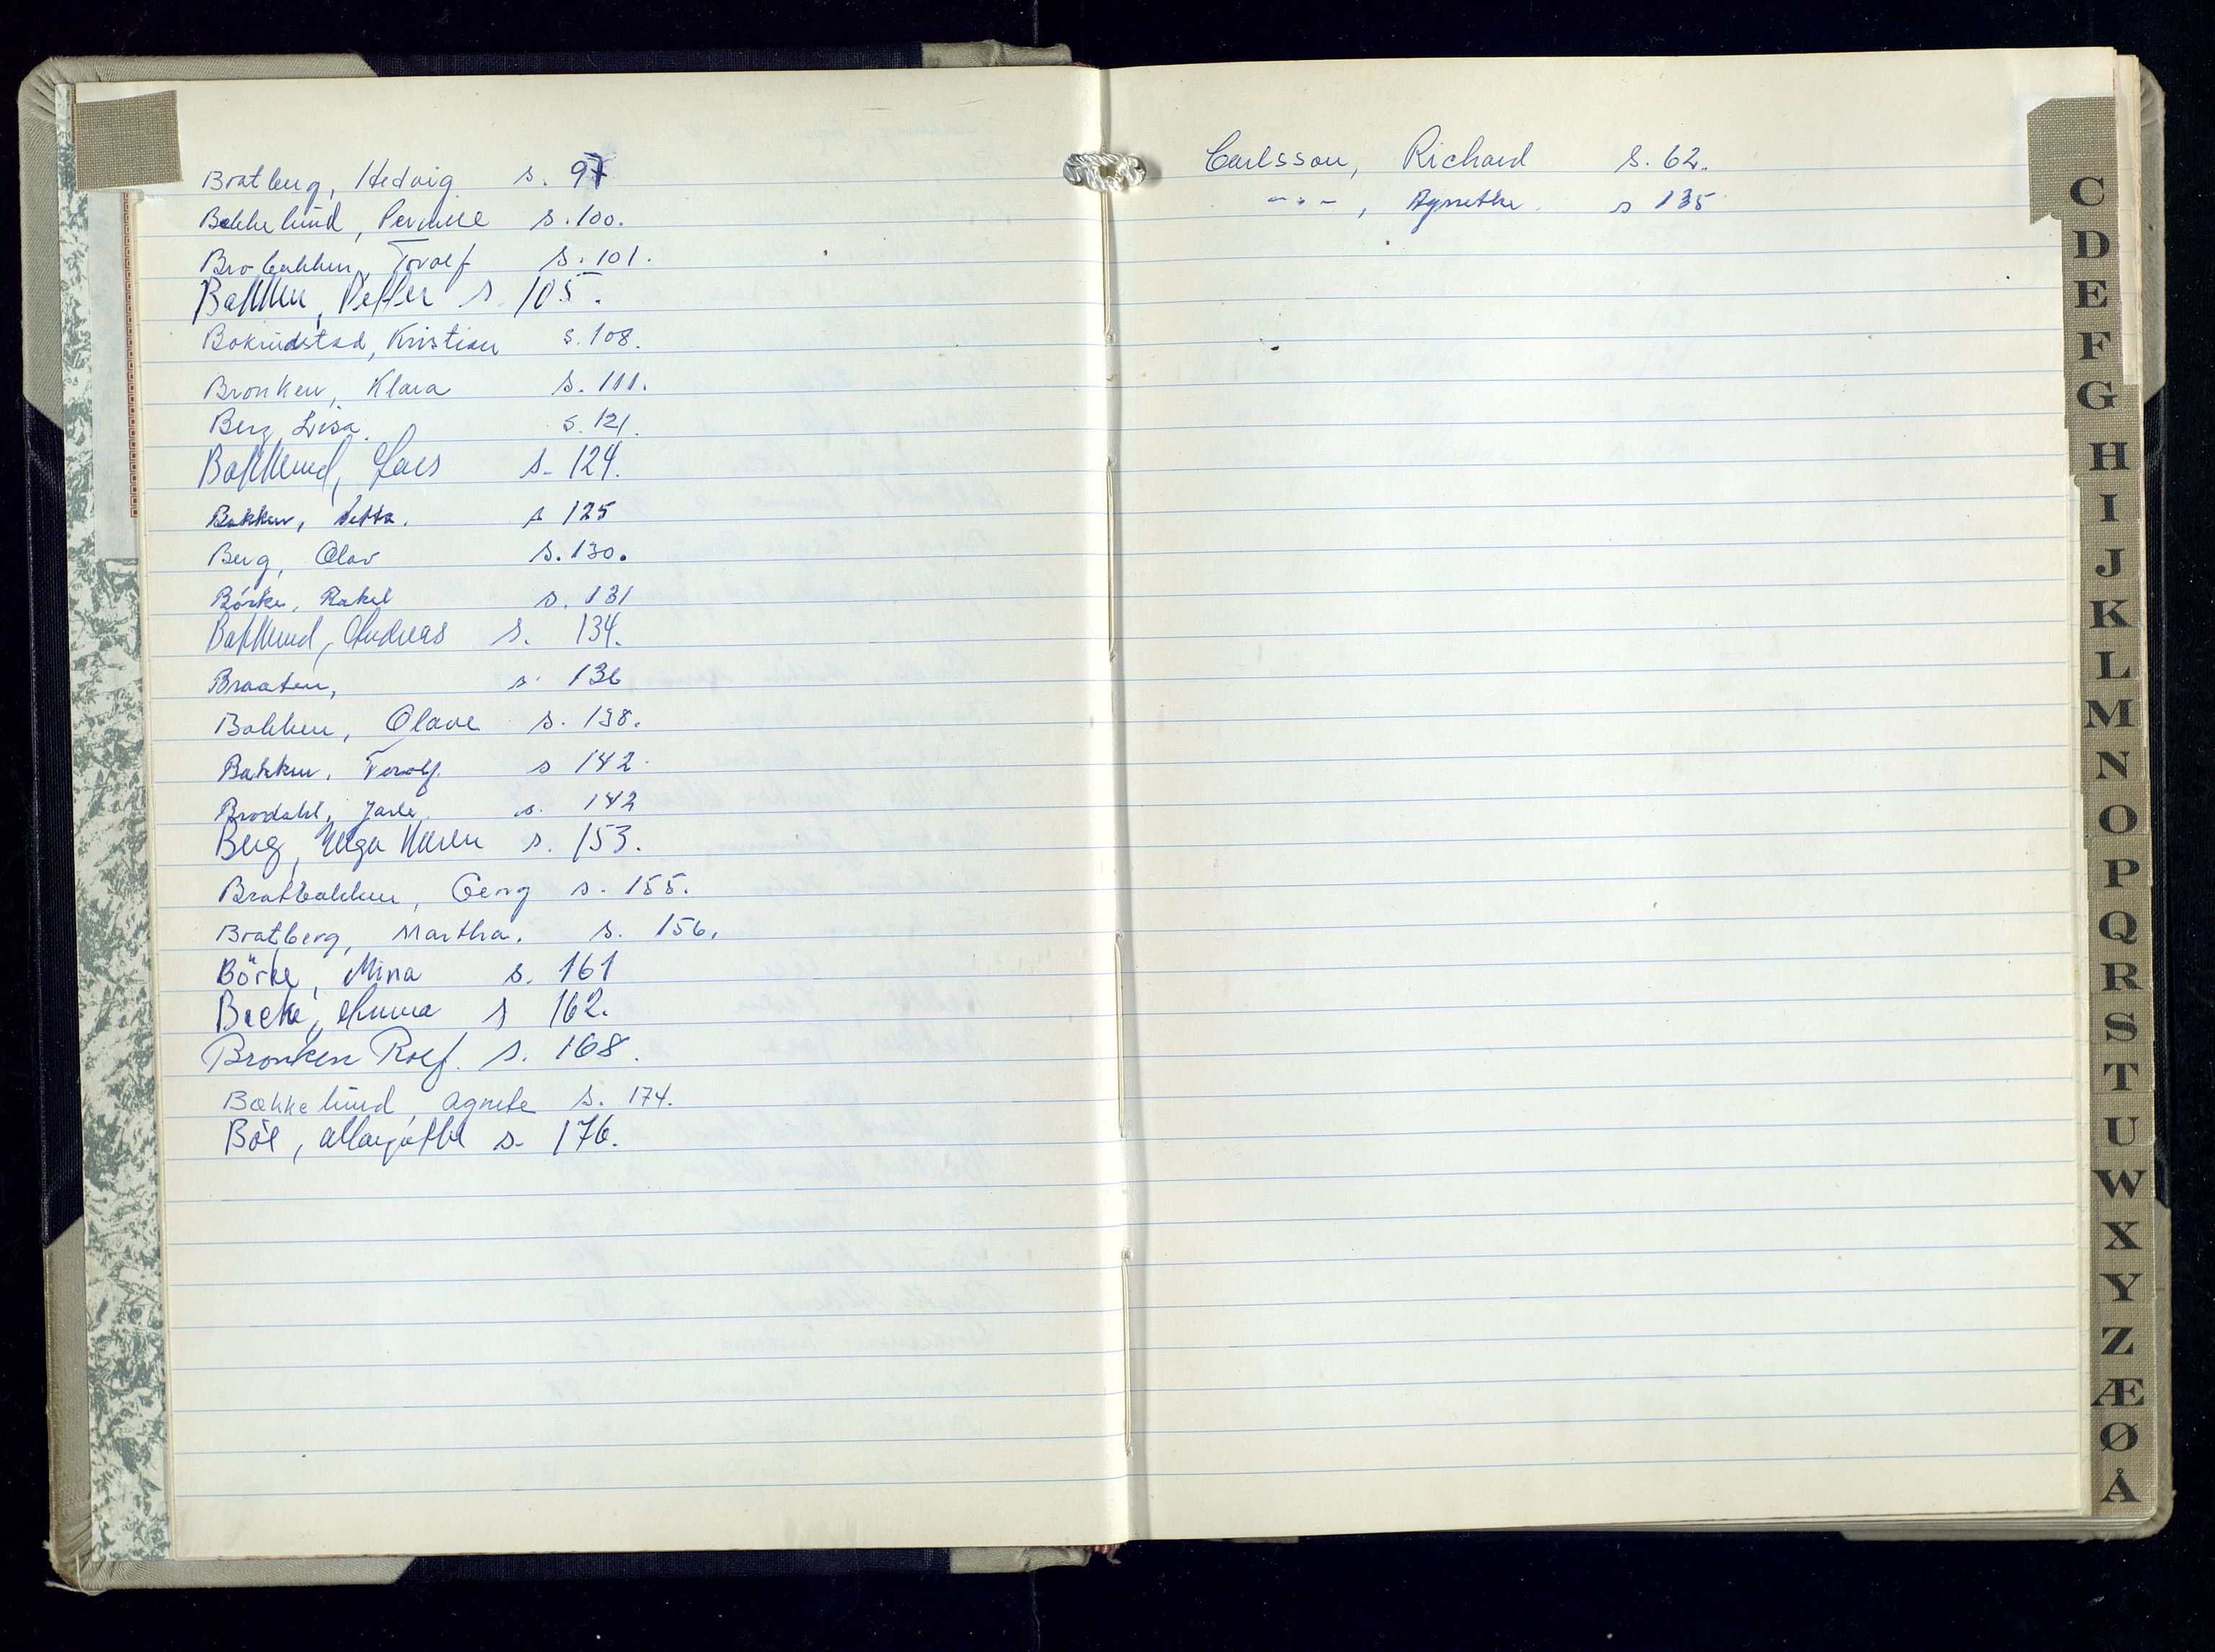 Bratberg, Hedvig s. 97
Bekkelund, Pernille s. 100.
Brobakken, Torolf s. 101.
Bakken, Petter s. 105.
Bokrudstad, Kristian s. 108.
Bronken, Klara s. 111.
Berg, Lisa. s. 121.
Bakklund, Lars s. 124.
Bakken, s 125
Berg, Olav s. 130.
Börke, Rakel s. 131
Bakklund, Andreas s. 134.
Braaten, s. 136
Bakken, Olave s. 138.
Bakken, Torolf. s 142.
Brodahl, Jarle. s. 142
Berg, Helga Maren s. 153.
Bratbakken, Georg s. 155.
Bratberg, Martha. s. 156.
Börke, Mina s. 161
Anna s 162.
Bronken Rolf. s. 168.
Bækkelund, Agnete s. 174.
s. 176.
Carlsson, Richard s. 62.
- " - , Agnethe. s 135
C
D
E
F
G
H
I
J
K
L
M
N
O
P
Q
R
S
T
U
W
X
Y
Z
Æ
Ø
Å